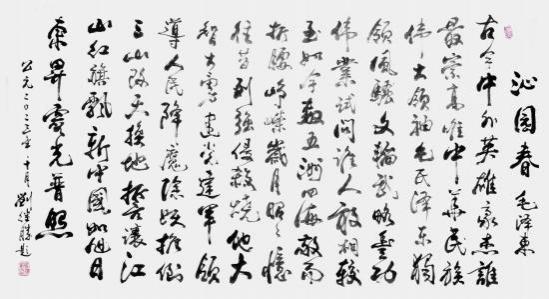 沁园春 毛泽东
古今中外英雄豪杰谁
最崇高唯中华民族
伟大领袖毛氏泽东独
领风骚文韬武略丰功
伟业试问谁人敢相较
至如今数五洲四海敬而
折腰峥嵘岁月昭昭忆
往昔列强侵杀烧他大
智大勇建党建军领
導人民降魔除妖推倒
三山改天换地誓讓江
山红旗飘新中國如旭日
东昇霞光普照
公元二〇二三年十月劉继胜题